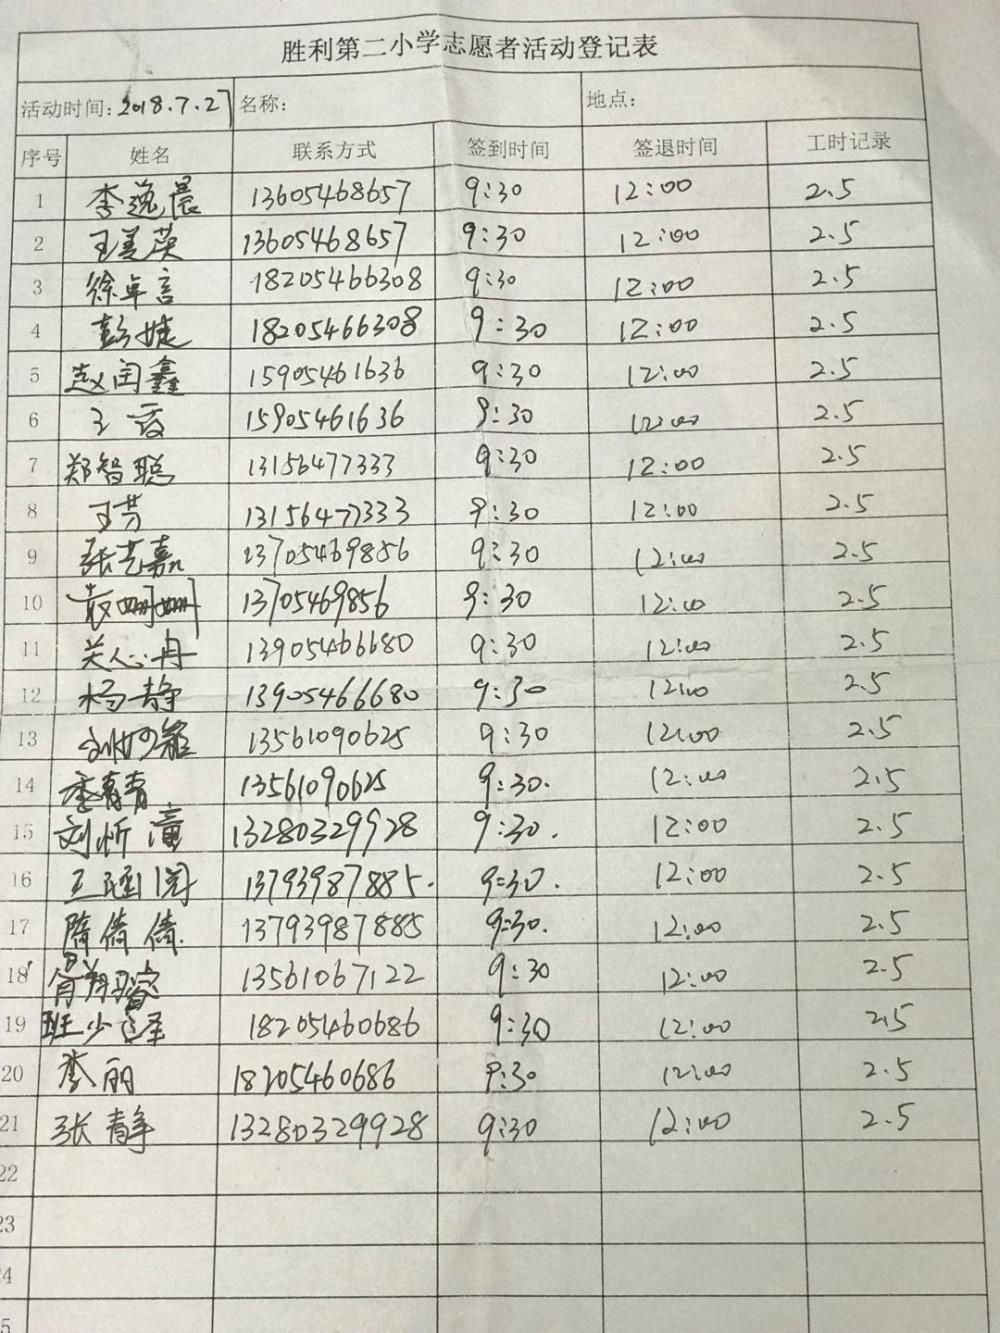 胜利第二小学志愿者活动登记表
活动时间:2018.7.27 名称: 地点:
序号 姓名 联系方式 签到时间 签退时间 工时记录
1 李逸晨 13605468657 9:30 12:00 2.5
2 王美英 13605468657 9:30 12:00 2.5
3 徐卓言 18205466308 9:30 12:00 2.5
4 彭婕 18205466308 9:30 12:00 2.5
5 赵闰鑫 15905461636 9:30 12:00 2.5
6 王 15905461636 9:30 12:00 2.5
7 郑智聪 13156477333 9:30 12:00 2.5
8 王芳 13156477333 9:30 12:00 2.5
9 张艺嘉 13705469856 9:30 12:00 2.5
10 袁姗姗 13705469856 9:30 12:00 2.5
11 关心丹 13905466680 9:30 12:00 2.5
12 杨静 13905466680 9:30 12:00 2.5
13 13561090625 9:30 12:00 2.5
14 李青青 13561090625 9:30. 12:00 2.5
15 刘忻潼 13280329928 9:30. 12:00 2.5
16 王涵 13793987885. 9:30. 12:00 2.5
17 隋倩倩. 13793987885 9:30. 12:00 2.5
18 13561067122 9:30 12:00 2.5
19 班少泽 18205460686 9:30 12:00 2.5
20 李丽 18205460686 9:30 12:00 2.5
21 张静 13280329928 9:30 12:00 2.5
22
23
4
5